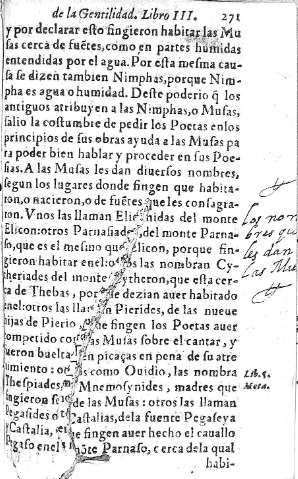 de la Gentilidad. Libro III. 271
y por declarar esto fingieron habitar las Mu
sas cerca de fuẽtes, como en partes humidas
entendidas por el agua. Por esta mesma cau-
sa se dizen tambien Nimphas, porque Nim-
pha es agua o humidad. Deste poderio q̃ los
antiguos atribuyen a las Nimphas, o Musas,
salio la costumbre de pedir los Poetas enlos
principios de sus obras ayuda a las Musas pa
ra poder bien hablar y proceder en sus Poe-
sias. A las Musas les dan diuersos nombres,
segun los lugares donde fingen que habita-
ron, o nacieron, o de fuẽtes que les consagra-
ron. Vnos las llaman Elic nidas del monte
Elicon: otros Parnasiad , del monte Parna-
so, que es el mesmo que licon, porque fin-
gieron habitar enel: o os las nombran Cy-
theriades del monte ytheron, que esta cer-
ca de Thebas, por e dezian auer habitado
enel: otros las lla n Pierides, de las nueue
hijas de Pierio, e fingen los Poetas auer
competido co as Musas sobre el cantar, y
fueron buelta en picaças en pena de su atre
uimiento: o as como Ouidio, las nombra
Thespiades, Mnemosynides, madres que
fingieron se de las Musas: otros las llaman
Pegasides o Castalias, dela fuente Pegasea y
Castalia, e fingen auer hecho el cauallo
Pegaso enel mõte Parnaso, cerca dela qual
habi-
los nom
bres que
les dan
a las Mu
Lib. 5.
Meta.